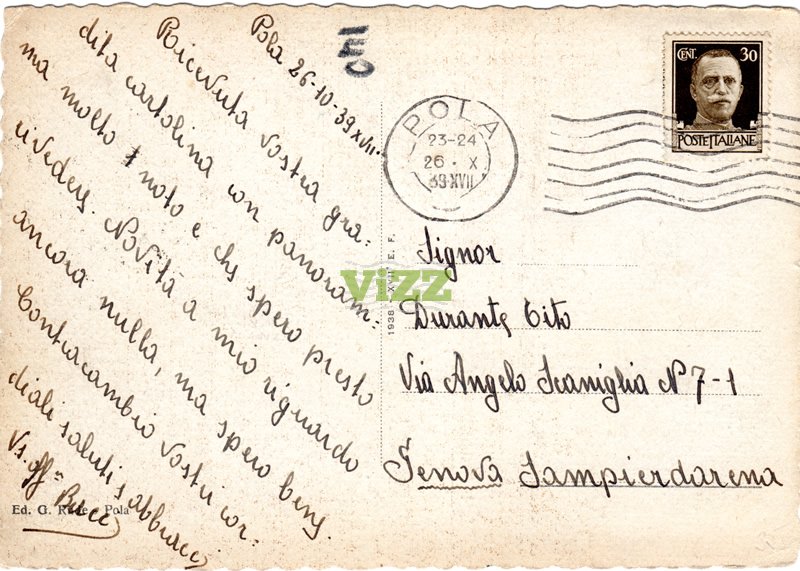 Pola 26-10-39 XVII.
Ricevuta vostra gra-
dita cartolina con panoram-
ma molto noto e che spero presto
rivedere. Novità a mio riguardo
ancora nulla, ma spero bene.
Contracambio vostri cor-
diali saluti s abbracci
Vs. aff.
Bucci
Ed. G. - Pola
1938 - XVII E. F.
POLA
23-24
26 · X
39·XVII
CENT. 30
POSTE ITALIANE
vizz
Signor
Durante Tito
Via Angelo Scaniglia N° 7-1
Genova Sampierdarena